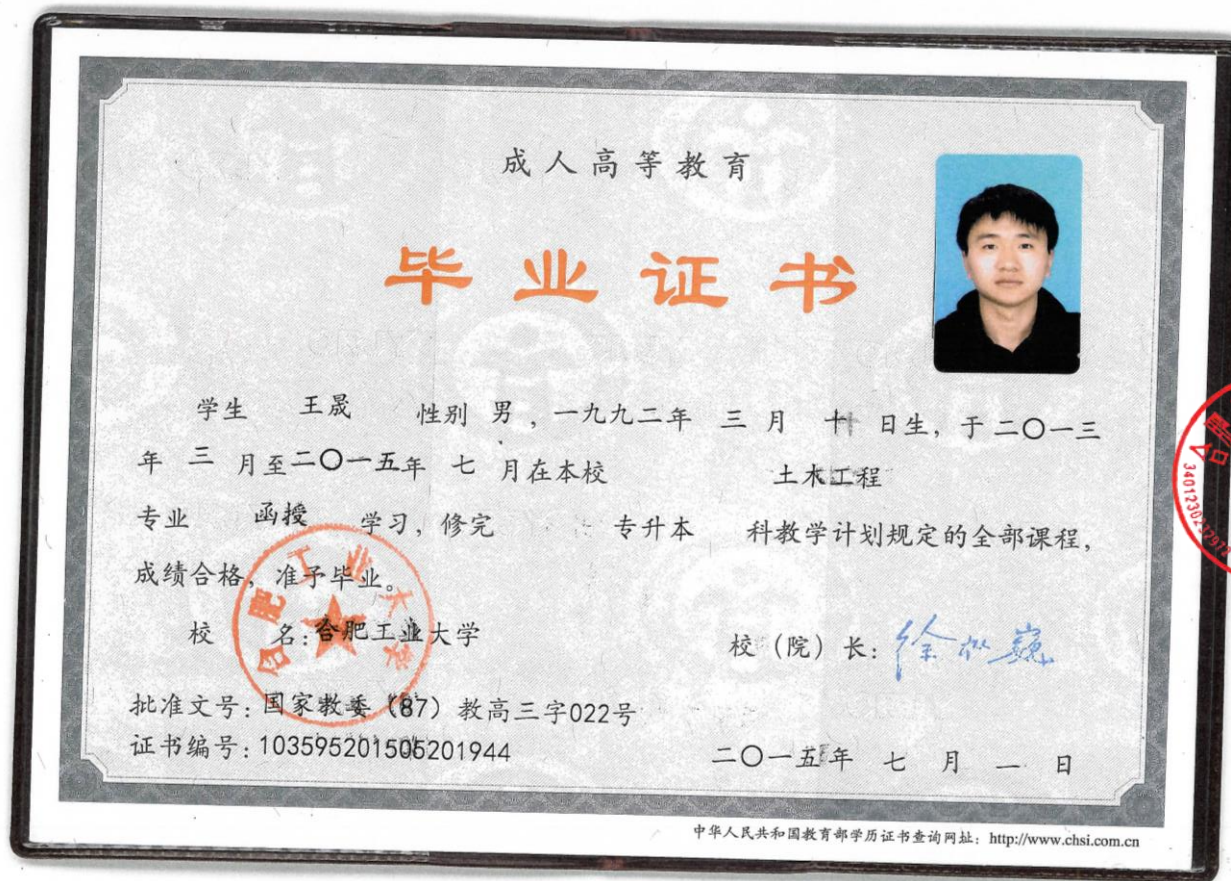 成人高等教育
毕业证书
学生 王晟 性别 男，一九九二年 三 月 十 日生，于二〇一三
年 三 月至二〇一五年 七 月在本校 土木工程
专业 函授 学习，修完 专升本 科教学计划规定的全部课程，
成绩合格，准予毕业。
合肥工业大学
校 名：合肥工业大学
校（院）长：徐枞巍
批准文号：国家教委（87）教高三字022号
证书编号：103595201505201944
二〇一五年 七 月 一 日
中华人民共和国教育部学历证书查询网址：http://www.chsi.com.cn